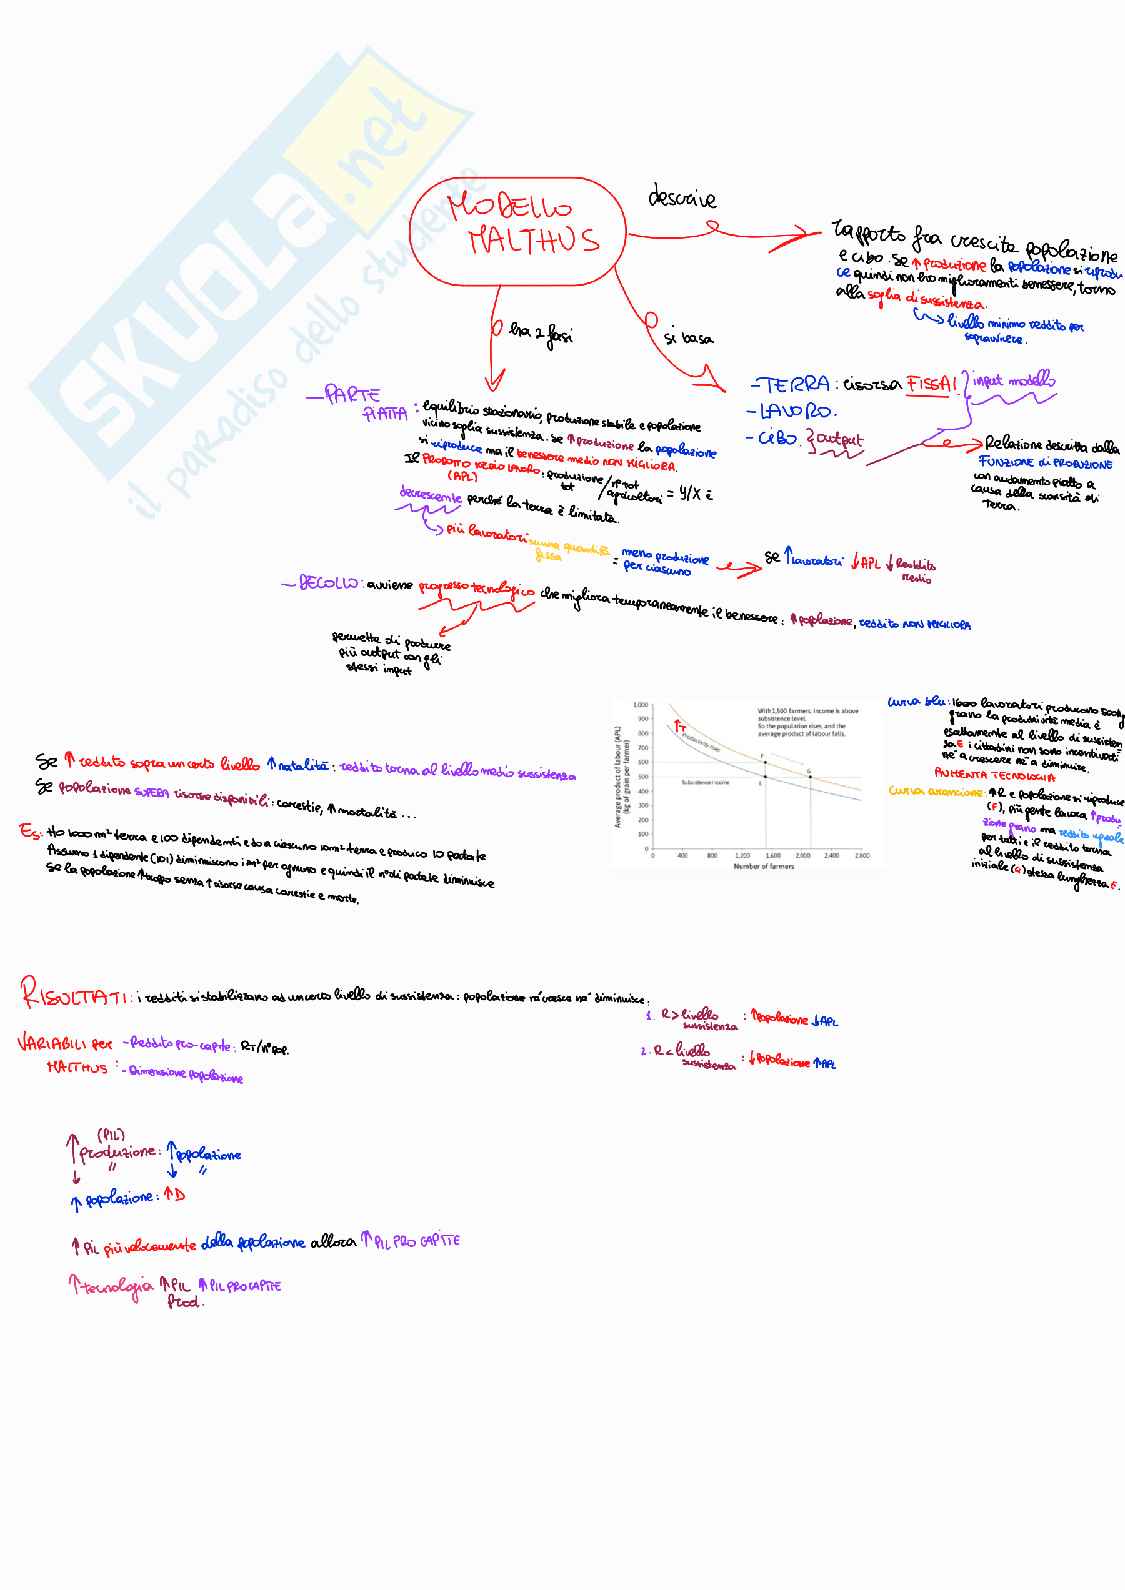 SKUOLA.net
il paradiso dello studente
MODELLO
MALTHUS
descrive
rapporto fra crescita popolazione
e cibo. Se ↑ produzione la popolazione si riprodu
ce quindi non ho miglioramenti benessere, torno
alla soglia di sussistenza.
livello minimo reddito per
sopravvivere.
ha 2 fasi
si basa
- TERRA: risorsa FISSA! } input modello
- LAVORO.
- CIBO. } output
Relazione descritta dalla
FUNZIONE di PRODUZIONE
con andamento piatto a
causa della scarsità di
Terra.
- PARTE
PIATTA: equilibrio stazionario, produzione stabile e popolazione
vicino soglia sussistenza. se ↑ produzione la popolazione
si riproduce ma il benessere medio NON MIGLIORA.
Il PRODOTTO MEDIO LAVORO: produzione tot / n° tot agricoltori = Y/X è
(APL)
decrescente perché la terra è limitata.
più lavoratori su una quantità
fissa
= meno produzione
per ciascuno
se ↑ lavoratori ↓ APL ↓ Reddito
medio
- DECOLLO: avviene progresso tecnologico che migliora temporaneamente il benessere: ↑ popolazione, reddito NON MIGLIORA
permette di produrre
più output con gli
stessi input
Se ↑ reddito sopra un certo livello ↑ natalità: reddito torna al livello medio sussistenza
Se popolazione SUPERA risorse disponibili: carestie, ↑ mortalità ...
Es: Ho 1000 m² terra e 100 dipendenti e do a ciascuno 10 m² terra e produco 10 patate
Assumo 1 dipendente (101) diminuiscono i m² per ognuno e quindi il n° di patate diminuisce
Se la popolazione ↑ troppo senza ↑ risorse causa carestie e morte.
Average product of labour (APL)
(kg of grain per farmer)
1,000
900
800
700
600
500
400
300
200
100
0
0 400 800 1,200 1,600 2,000 2,400 2,800
Number of farmers
With 1,500 farmers, income is above
subsistence level.
So the population rises, and the
average product of labour falls.
↑T
Productivity rises
Subsistence income
F
G
E
curva blu: 1600 lavoratori producono 500kg
grano la produttività media è
esattamente al livello di sussisten
sa E i cittadini non sono incentivati
nè a crescere nè a diminuire.
AUMENTA TECNOLOGIA
curva arancione: ↑R e popolazione si riproduce
(F), più gente lavora ↑ produ
zione grano ma reddito uguale
per tutti e il reddito torna
al livello di sussistenza
iniziale (G) stessa lunghezza E.
RISULTATI: i redditi si stabilizzano ad un certo livello di sussistenza: popolazione nè cresce nè diminuisce.
1. R > livello
sussistenza : ↑ popolazione ↓ APL
2. R < livello
sussistenza : ↓ popolazione ↑ APL
VARIABILI per - Reddito pro-capite: RT/n° pop.
MALTHUS : - Dimensione popolazione
(PIL)
↑ produzione: ↑ popolazione
↓ " ↓ "
↑ popolazione: ↑ D
↑ PIL più velocemente della popolazione allora ↑ PIL PRO CAPITE
↑ tecnologia ↑ PIL ↑ PIL PRO CAPITE
Prod.